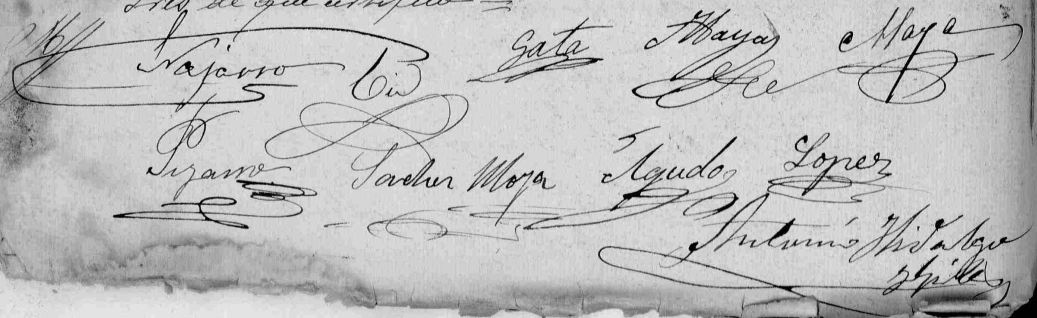 de que certifico =
Najarro Cid Gata Maya Maya
Pizarro Sanchez Moya Agudo Lopez
Antonio Hidalgo